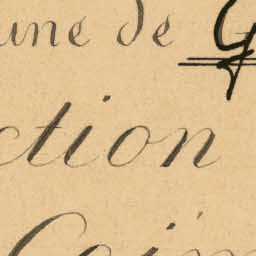 une de G
ction
Coim